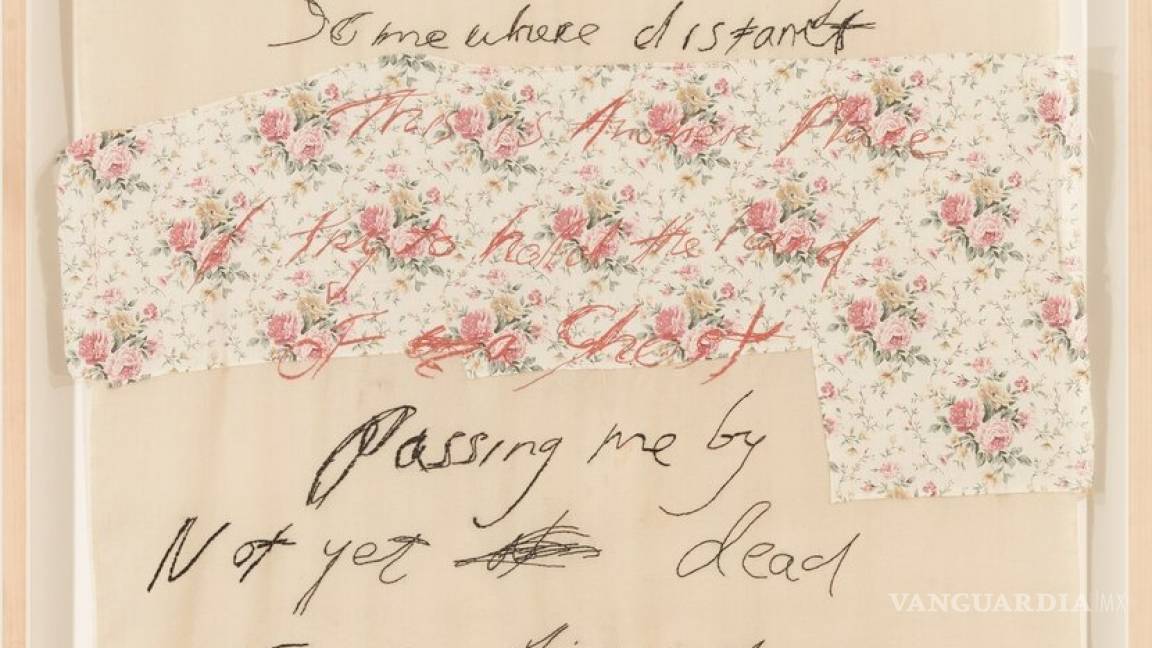 Somewhere distant
This is Another Place
I try to hold the hand
of a Ghost
Passing me by
Not yet dead
VANGUARDIA MX